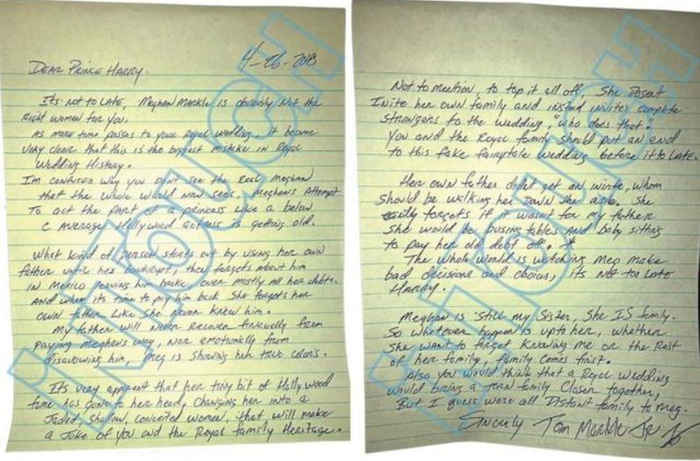 4-26-2018
DEAR PRINCE HARRY.
ITS NOT TO LATE, MEGHAN MARKLE IS OBVIOUSLY NOT THE
RIGHT WOMEN FOR YOU.
AS MORE TIME PASSES TO YOUR ROYAL WEDDING, IT BECAME
VERY CLEAR THAT THIS IS THE BIGGEST MISTAKE IN ROYAL
WEDDING HISTORY.
IM CONFUSED WHY YOU DON'T SEE THE REAL MEGHAN
THAT THE WHOLE WORLD NOW SEES. MEGHAN'S ATTEMPT
TO ACT THE PART OF A PRINCESS LIKE A BELOW
C AVERAGE HOLLYWOOD ACTRESS IS GETTING OLD.
WHAT KIND OF PERSON STARTS OUT BY USING HER OWN
FATHER UNTIL HES BANKRUPT, THEN FORGETS ABOUT HIM
IN MEXICO LEAVING HIM BROKE, OVER MOSTLY ALL HER DEBTS.
AND WHEN ITS TIME TO PAY HIM BACK SHE FORGETS HER
OWN FATHER LIKE SHE NEVER KNEW HIM.
MY FATHER WILL NEVER RECOVER FINANCIALLY FROM
PAYING MEGHAN'S WAY, NOR EMOTIONALLY FROM
DISAVOWING HIM, MEG IS SHOWING HER TRUE COLORS.
ITS VERY APPARENT THAT HER TINY BIT OF HOLLYWOOD
FAME HAS GONE TO HER HEAD, CHANGING HER INTO A
JADED, SHALLOW, CONCEITED WOMEN, THAT WILL MAKE
A JOKE OF YOU AND THE ROYAL FAMILY HERITAGE.
NOT TO MENTION, TO TOP IT ALL OFF, SHE DOSENT
INVITE HER OWN FAMILY AND INSTEAD INVITES COMPLETE
STRANGERS TO THE WEDDING, "WHO DOES THAT"
YOU AND THE ROYAL FAMILY SHOULD PUT AN END
TO THIS FAKE FAIRYTALE WEDDING BEFORE IT TO LATE.
HER OWN FATHER DIDN'T GET AN INVITE, WHOM
SHOULD BE WALKING HER DOWN THE ASLE. SHE
FORGETS IF IT WASN'T FOR MY FATHER
SHE WOULD BE BUSING TABLES AND BABY SITTING
TO PAY HER OLD DEBT OFF.
THE WHOLE WORLD IS WATCHING MEG MAKE
BAD DECISIONS AND CHOICES, ITS NOT TOO LATE
HARRY.
MEGHAN IS STILL MY SISTER, SHE IS FAMILY.
SO WHATEVER HAPPENS IS UP TO HER, WHETHER
SHE WANT TO FORGET KNOWING ME OR THE REST
OF HER FAMILY, FAMILY COMES FIRST.
ALSO YOU WOULD THINK THAT A ROYAL WEDDING
WOULD BRING A TORN FAMILY CLOSER TOGETHER,
BUT I GUESS WERE ALL DISTANT FAMILY TO MEG.
SINCERLY TOM MARKLE JR
IN TOUCH
IN TOUCH